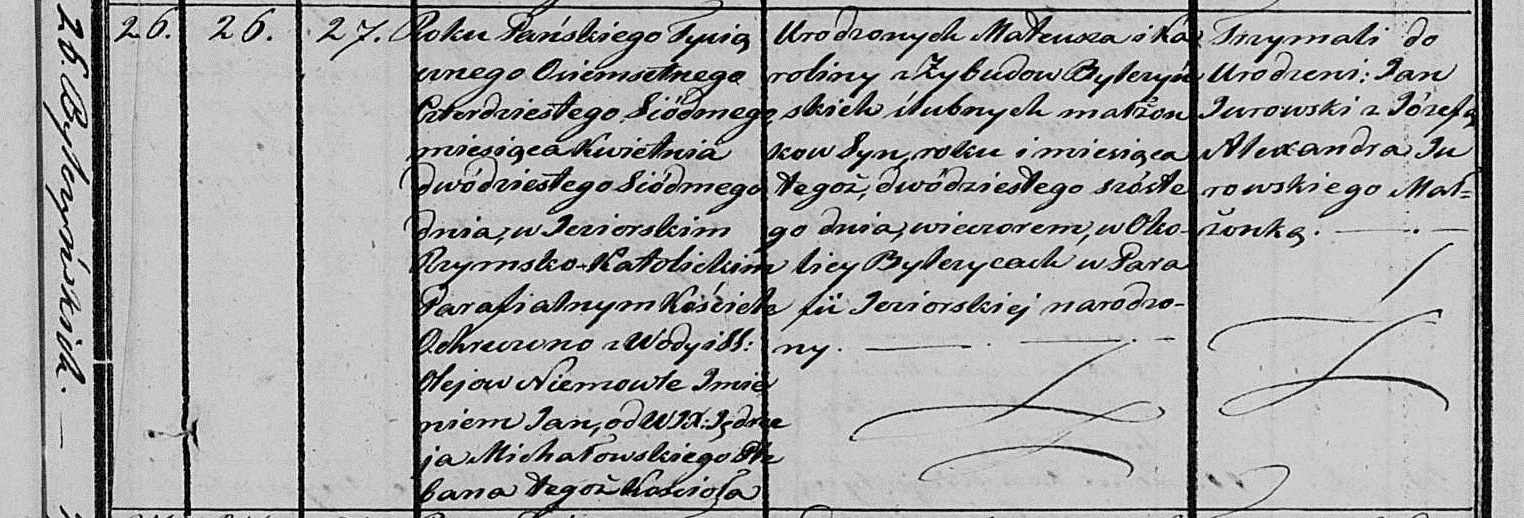 26. Byterzyńskich.
26. 26. 27.
Roku Pańskiego Tysią
cznego Ośiemsetnego
Czterdziestego Siódmego
miesiąca Kwietnia
dwódziestego Siódmego
dnia, w Jeziorskim
Rzymsko-Katolickim
Parafialnym Kościele
Ochrzczono z Wody i SS:
Olejow Niemowle Imie
niem Jan, od WJX: Jędrze
ja Michałowskiego Ple
bana tegoż Kościoła
Urodzonych Mateusza i Ka
roliny z Żybudow Byterzyń
skich ślubnych małżon
kow Syn, roku i miesiąca
tegoż, dwódziestego szóste
go dnia, wieczorem, w Oko-
licy Byterzycach w Para
fii Jeziorskiej narodzo-
ny.
Trzymali do
Urodzeni: Jan
Jurowski z Józefą
Alexandra Ju
rowskiego Mał=
żonką.